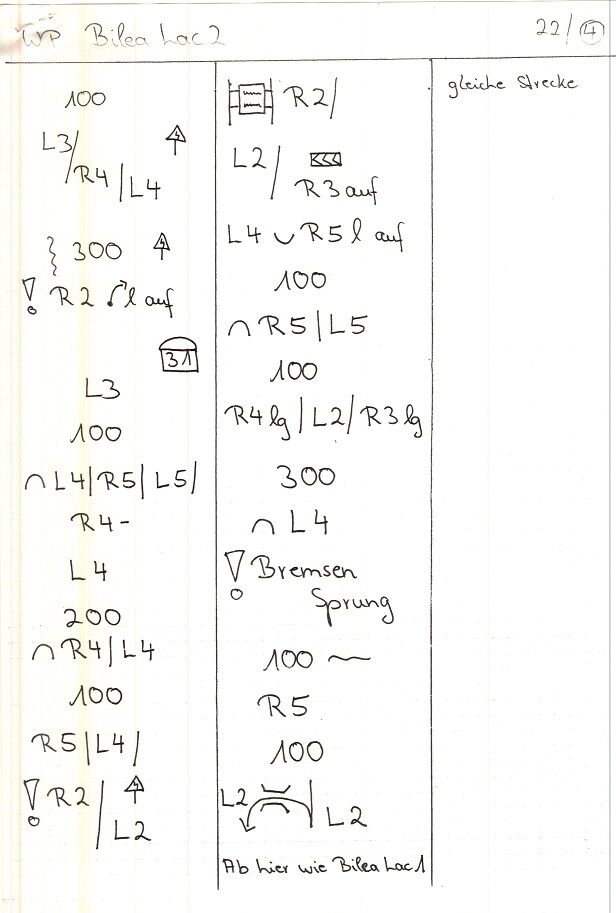 WP Bilea Lac 2
22/④
100
L3/
R4 | L4
300
! R2 l auf
31
L3
100
∩ L4 | R5 | L5 /
R4-
L4
200
∩ R4 / L4
100
R5 | L4 /
! R2 /
L2
R2 /
L2 /
R3 auf
L4 ∪ R5 l auf
100
∩ R5 | L5
100
R4 lg | L2 / R3 lg
300
∩ L4
! Bremsen
Sprung
100 ~
R5
100
L2 | L2
Ab hier wie Bilea Lac 1
gleiche Strecke